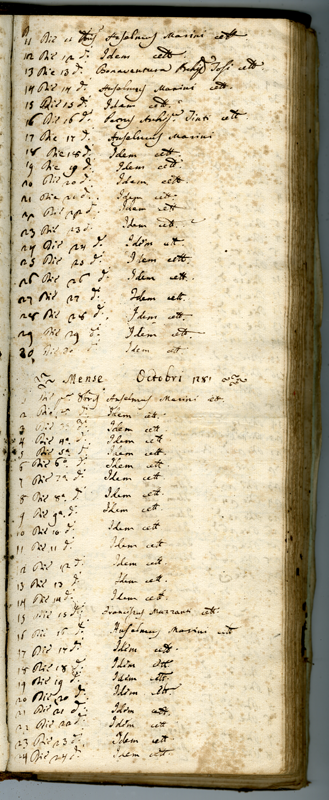 11 Die 11 Anselmus Marini cett
12 Die 12 d. Idem cett
13 Die 13 d. Bonaventura Tosi cett
14 Die 14 d. Anselmus Marini cett
15 Die 15 d. Idem cett
16 Die 16 d. Petrus Tinti cett
17 Die 17 d. Anselmus Marini
18 Die 18 d. Idem cett
19 Die 19 d. Idem cett
20 Die 20 d. Idem cett
21 Die 21 d. Idem cett
22 Die 22 d. Idem cett
23 Die 23 d. Idem cett
24 Die 24 d. Idem cett
25 Die 25 d. Idem cett
26 Die 26 d. Idem cett
27 Die 27 d. Idem cett
28 Die 28 d. Idem cett
29 Die 29 d. Idem cett
30 Idem cett
Mense Octobri 178
Anselmus Marini cett
2 Die 2 d. Idem cett
3 Die 3 d. Idem cett
4 Die 4 d. Idem cett
5 Die 5 d. Idem cett
6 Die 6 d. Idem cett
7 Die 7 d. Idem cett
8 Die 8 d. Idem cett
9 Die 9 d. Idem cett
10 Die 10 d. Idem cett
11 Die 11 d. Idem cett
12 Die 12 d. Idem cett
13 Die 13 d. Idem cett
14 Die 14 d. Idem cett
15 Die 15 d. Franciscus Mazzanti cett
16 Die 16 d. Anselmus Marini cett
17 Die 17 d. Idem cett
18 Die 18 d. Idem cett
19 Die 19 d. Idem cett
20 Die 20 d. Idem cett
21 Die 21 d. Idem cett
22 Die 22 d. Idem cett
23 Die 23 d. Idem cett
24 Die 24 d. Idem cett